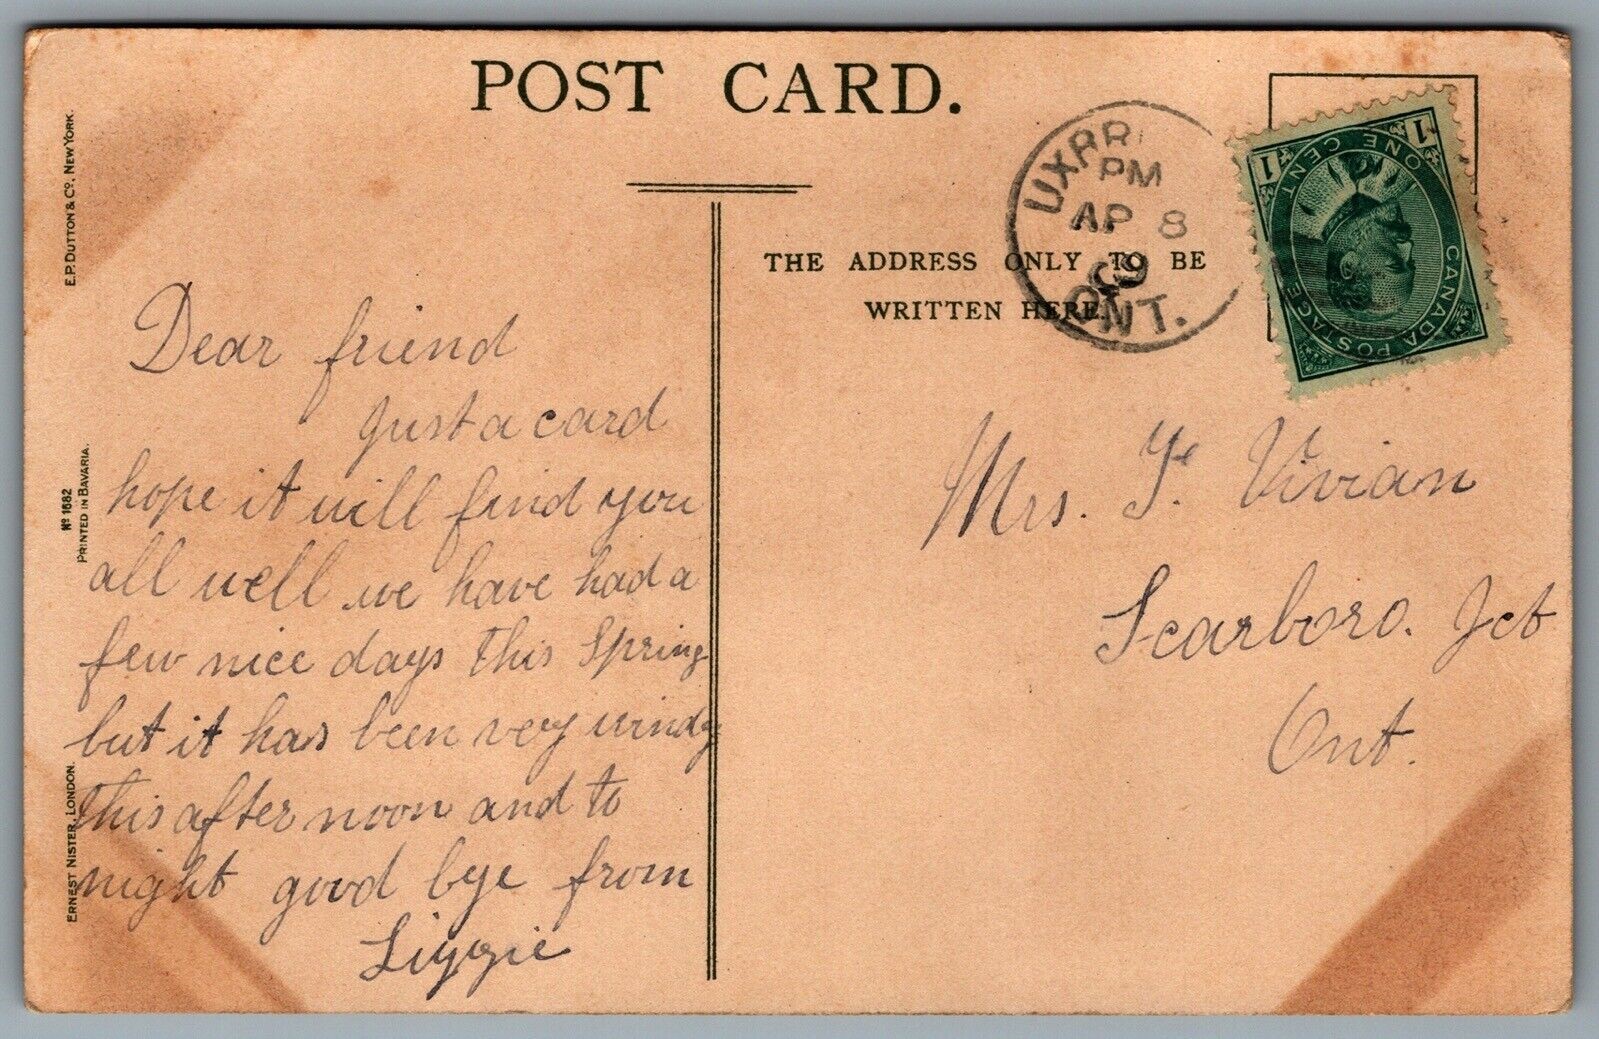 POST CARD.
E.P. DUTTON & Co. NEW YORK.
No 1682
PRINTED IN BAVARIA.
ERNEST NISTER, LONDON.
THE ADDRESS ONLY TO BE
WRITTEN HERE.
UXBRI
PM
AP 8
09
ONT.
CANADA POSTAGE
ONE CENT
1
1
Dear friend
just a card
hope it will find you
all well we have had a
few nice days this Spring
but it has been very windy
this after noon and to
night good bye from
Lizzie
Mrs. F. Vivian
Scarboro. Jct
Ont.